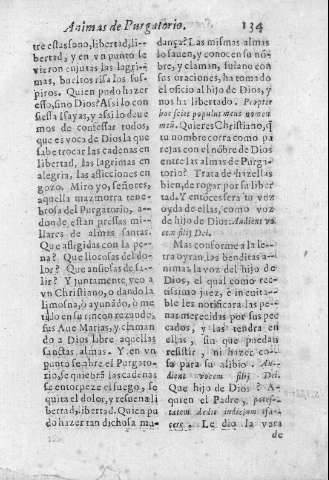 Animas de Purgatorio. 134
tre estas sono, libertad, li-
bertad, y en vn punto se
vieron enjutas las lagri-
mas, bueltos risa los sus-
piros. Quien pudo hazer
esso, sino Dios? Assi lo con
fiessa Isayas, y assi lo deue
mos de confessar todos,
que es voca de Dios la que
sabe trocar las cadenas en
libertad, las lagrimas en
alegria, las aflicciones en
gozo. Miro yo, señores,
aquella mazmorra tene-
brosa del Purgatorio, a-
donde estan pressas mi-
llares de almas santas.
Que afligidas con la pe-
na? Que llocosas del do-
lor? Que ansiosas de sa-
lir? Y juntamente veo a
vn Christiano, o dando la
limosna, o ayunãdo, ò me
tido en su rincon rezando,
sus Aue Marias, y claman
do a Dios libre aquellas
sanctas almas. Y en vn
punto se abre el Purgato-
rio, se quiebrã las cadenas
se entorpeze el fuego, se
quita el dolor, y resuena li
bertad, libertad. Quien pu
do hazer tan dichosa mu-
dança? Las mismas almas
lo sauen, y conocen su nõ-
bre, y claman, fulano con
sus oraciones, ha tomado
el oficio al hijo de Dios, y
nos ha libertado. Propter
hoc sciet populus meus nomen
meũ. Quieres Christiano, q̃
tu nombre corra como pa
rejas con el nõbre de Dios
entre las almas de Purga-
torio? Trata de hazellas
bien, de rogar por su liber
tad. Y entoces sera tu voz
oyda de ellas, como voz
de hijo de Dios. Audient vo
cem filij Dei.
Mas conforme a la le-
tra oyran las benditas a-
nimas la voz del hijo de
Dios, el qual como rec-
tissimo juez, è ineuita-
ble les notificara las pe-
nas merecidas por sus pec
cados, y las tendra en
ellas, sin que puedan
resistir, ni hazer co-
sa para su alibio. Au-
dient vocem filij Dei.
Que hijo de Dios? A-
quien el Padre, potes-
tatem dedit indicium
Le dio la vara
de